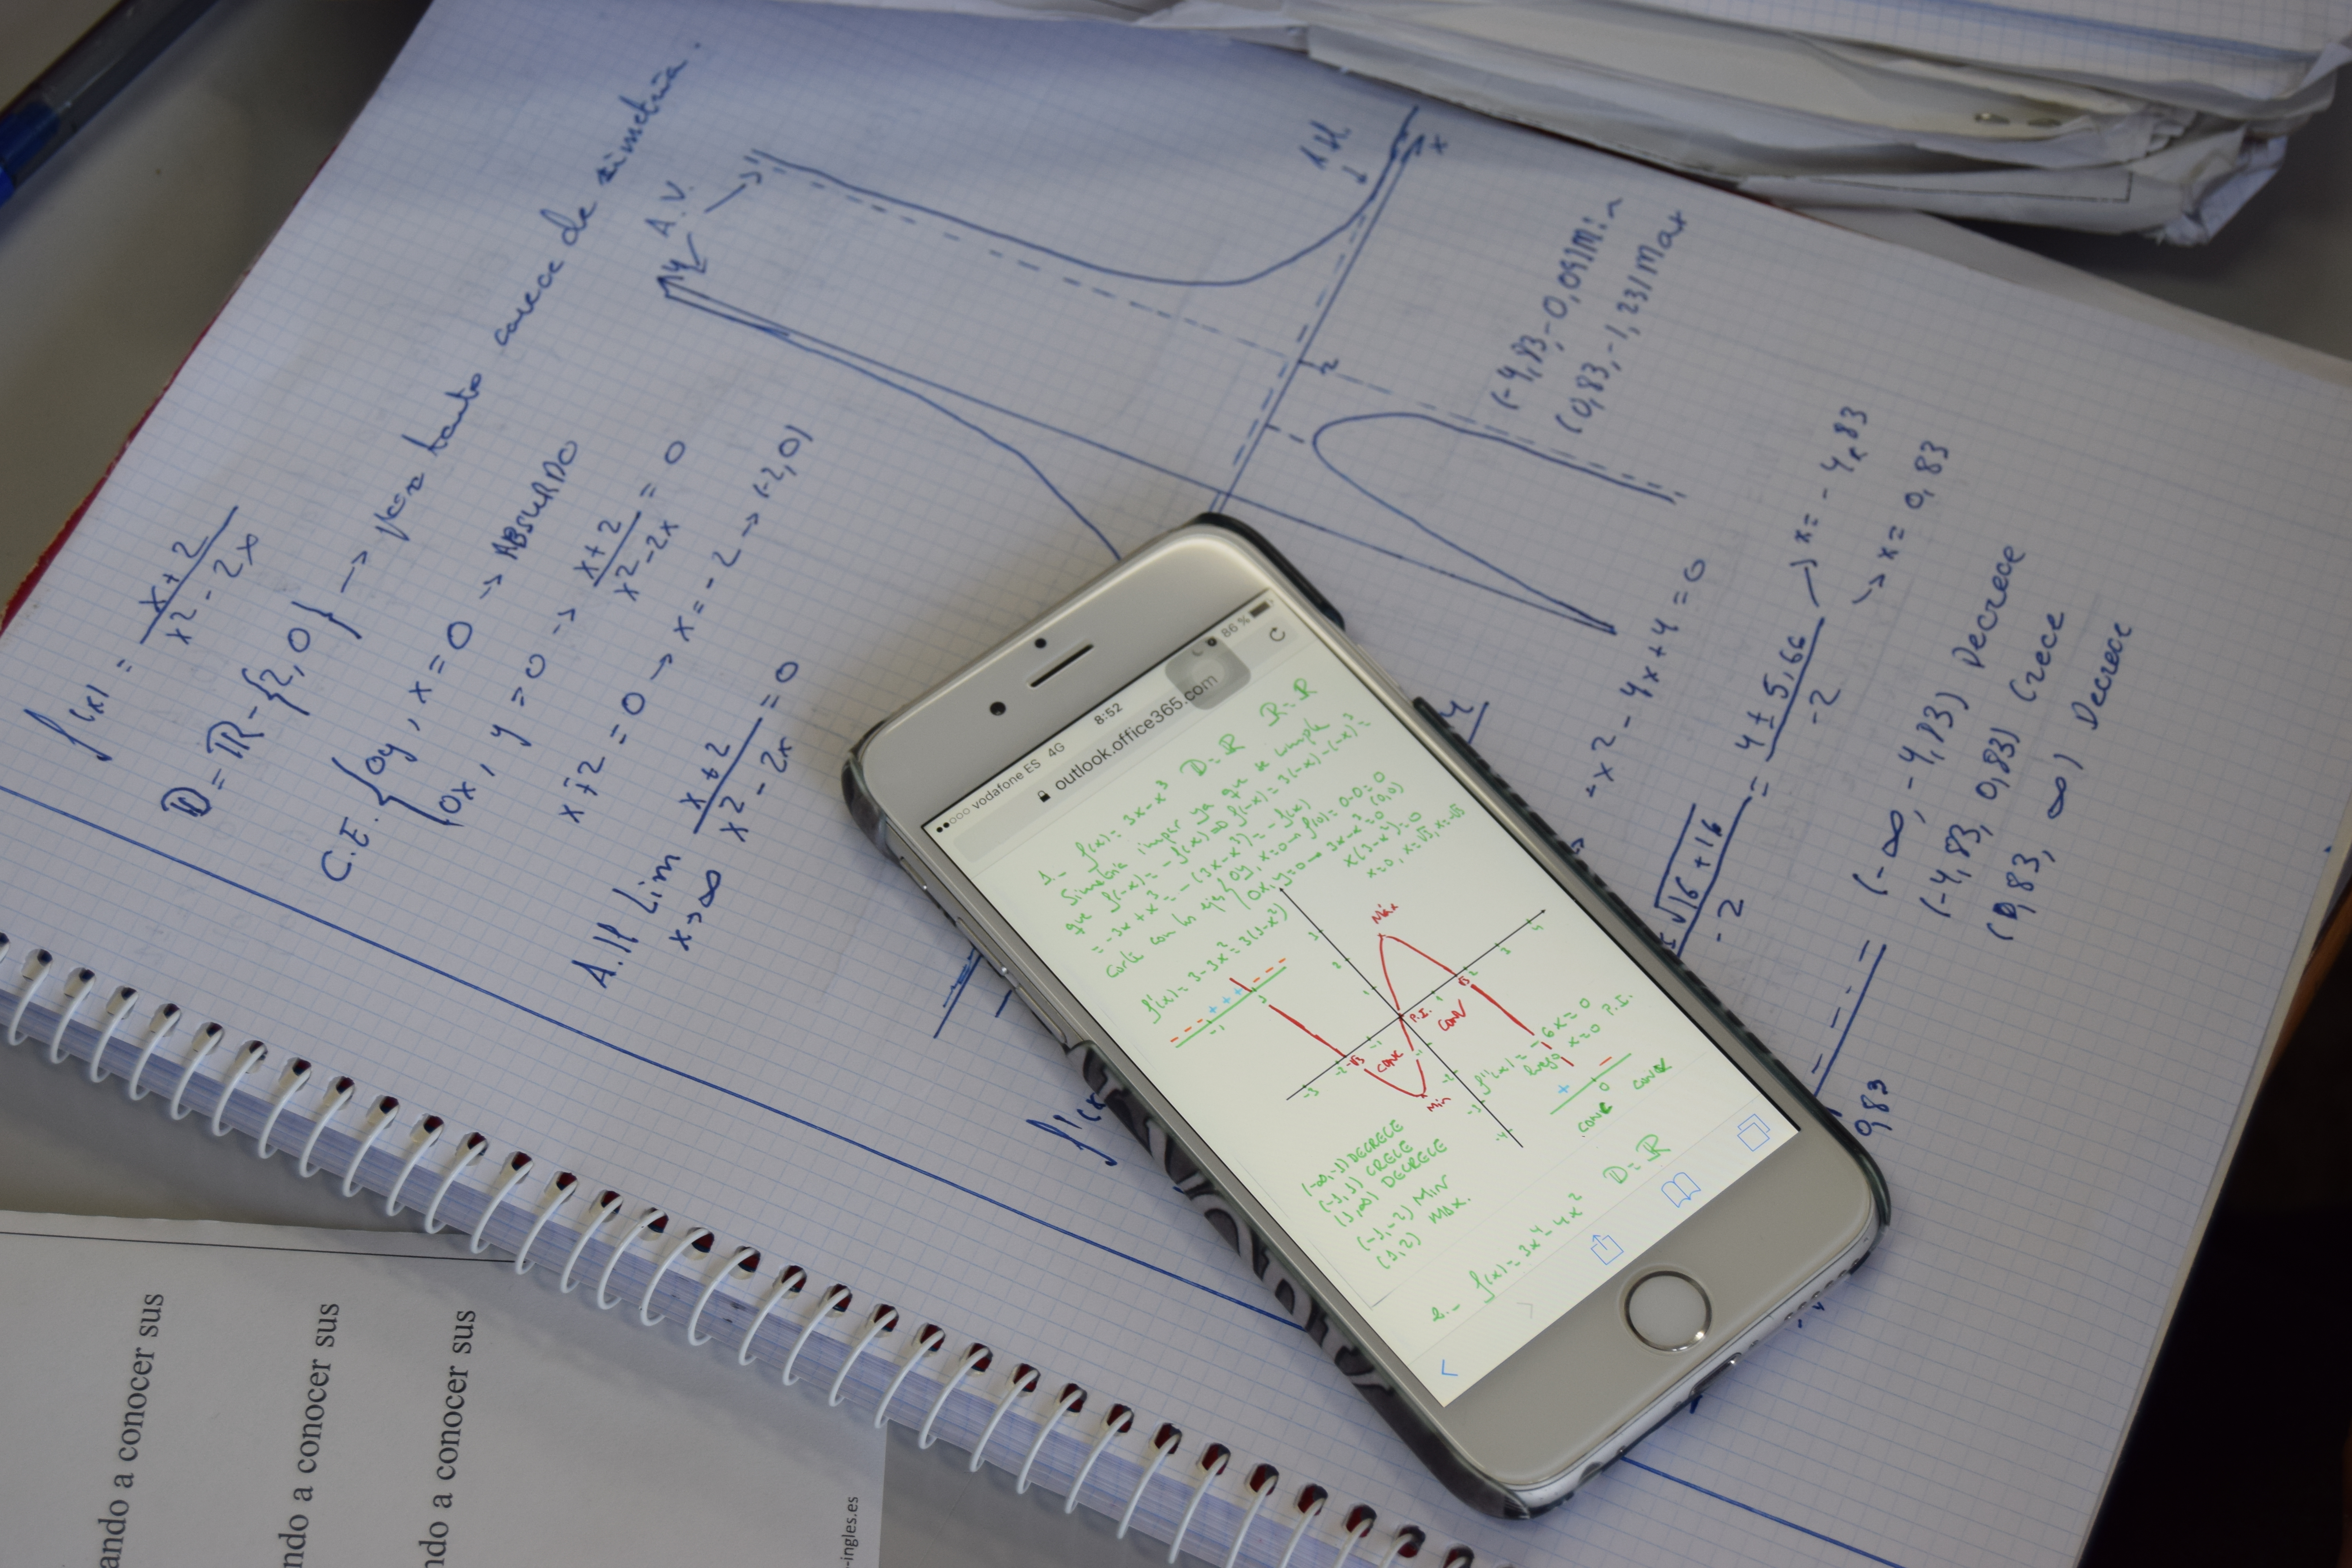 f(x) = x+2 / x²-2x
D = R-{2,0} → por tanto carece de simetría.
C.E. { Oy, x=0 → ABSURDO
Ox, y=0 → x+2 / x²-2x = 0
x+2=0 → x=-2 → (-2,0)
Lim x+2 / x²-2x = 0
x→∞
A.V.
y
x
2
1
(-4,83,-0,09) Min
(0,83,-1,23) Max
-x²-4x+4=0
√16+16 / -2 = 4±5,66 / -2 → x=-4,83
→ x=0,83
(-∞,-4,83) Decrece
(-4,83, 0,83) Crece
(0,83, ∞) Decrece
0,83
f'(x
vodafone ES 4G 8:52 86 %
outlook.office365.com
1.- f(x)=3x-x³ D=R R=R
Simetría impar ya que se cumple
que f(-x)=-f(x) ⇒ f(-x)=3(-x)-(-x)³=
=-3x+x³=-(3x-x³)=-f(x)
Corte con los ejes { Oy, x=0→f(0)=0-0=0 (0,0)
Ox, y=0→3x-x³=0
x(3-x²)=0
x=0, x=√3, x=-√3
f'(x)=3-3x²=3(1-x²)
- - + + + - - -
-1 1
Máx
P.I.
CONV
CONC
Min
-√3
√3
f''(x)=-6x=0
luego x=0 P.I.
+ -
0
(-∞,-1) DECRECE
(-1,1) CRECE
(1,∞) DECRECE
(-1,-2) MIN
(1,2) MAX.
2.- f(x)=3x⁴-4x² D=R
ando a conocer sus
ndo a conocer sus
ndo a conocer sus
-ingles.es